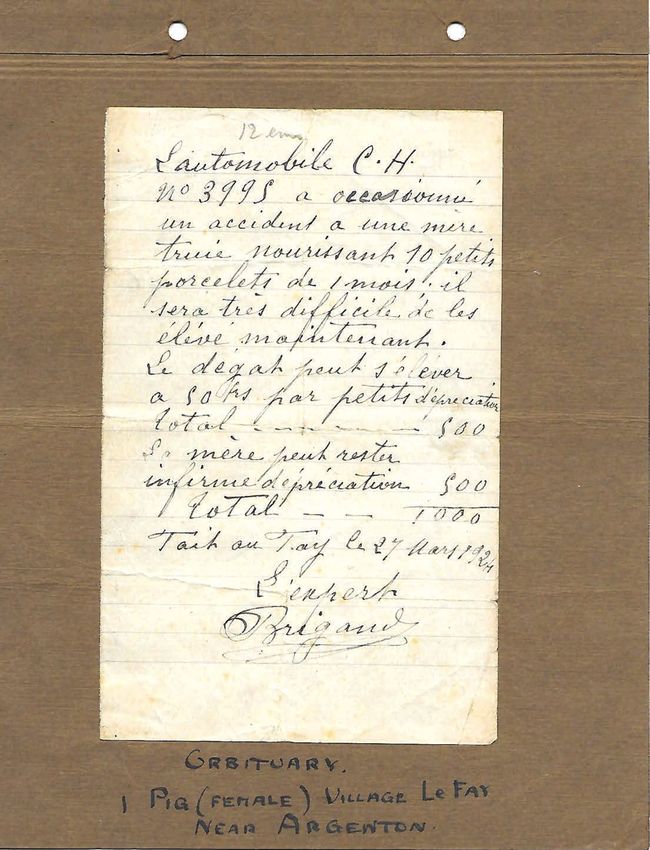 12 em
L'automobile C.H.
No 3995 a occasionné
un accident a une mère
truie nourissant 10 petits
porcelets de 1 mois. il
sera très difficile de les
élevé maintenant.
Le dégat peut s'élever
a 50 frs par petits dépreciation
total - - - - - - 500
La mère peut rester
infirme dépréciation 500
Total - - 1000
Fait au Fay le 27 Mars 1924
L'expert
Brigaud
ORBITUARY.
1 PIG (FEMALE) VILLAGE LE FAY
NEAR ARGENTON.